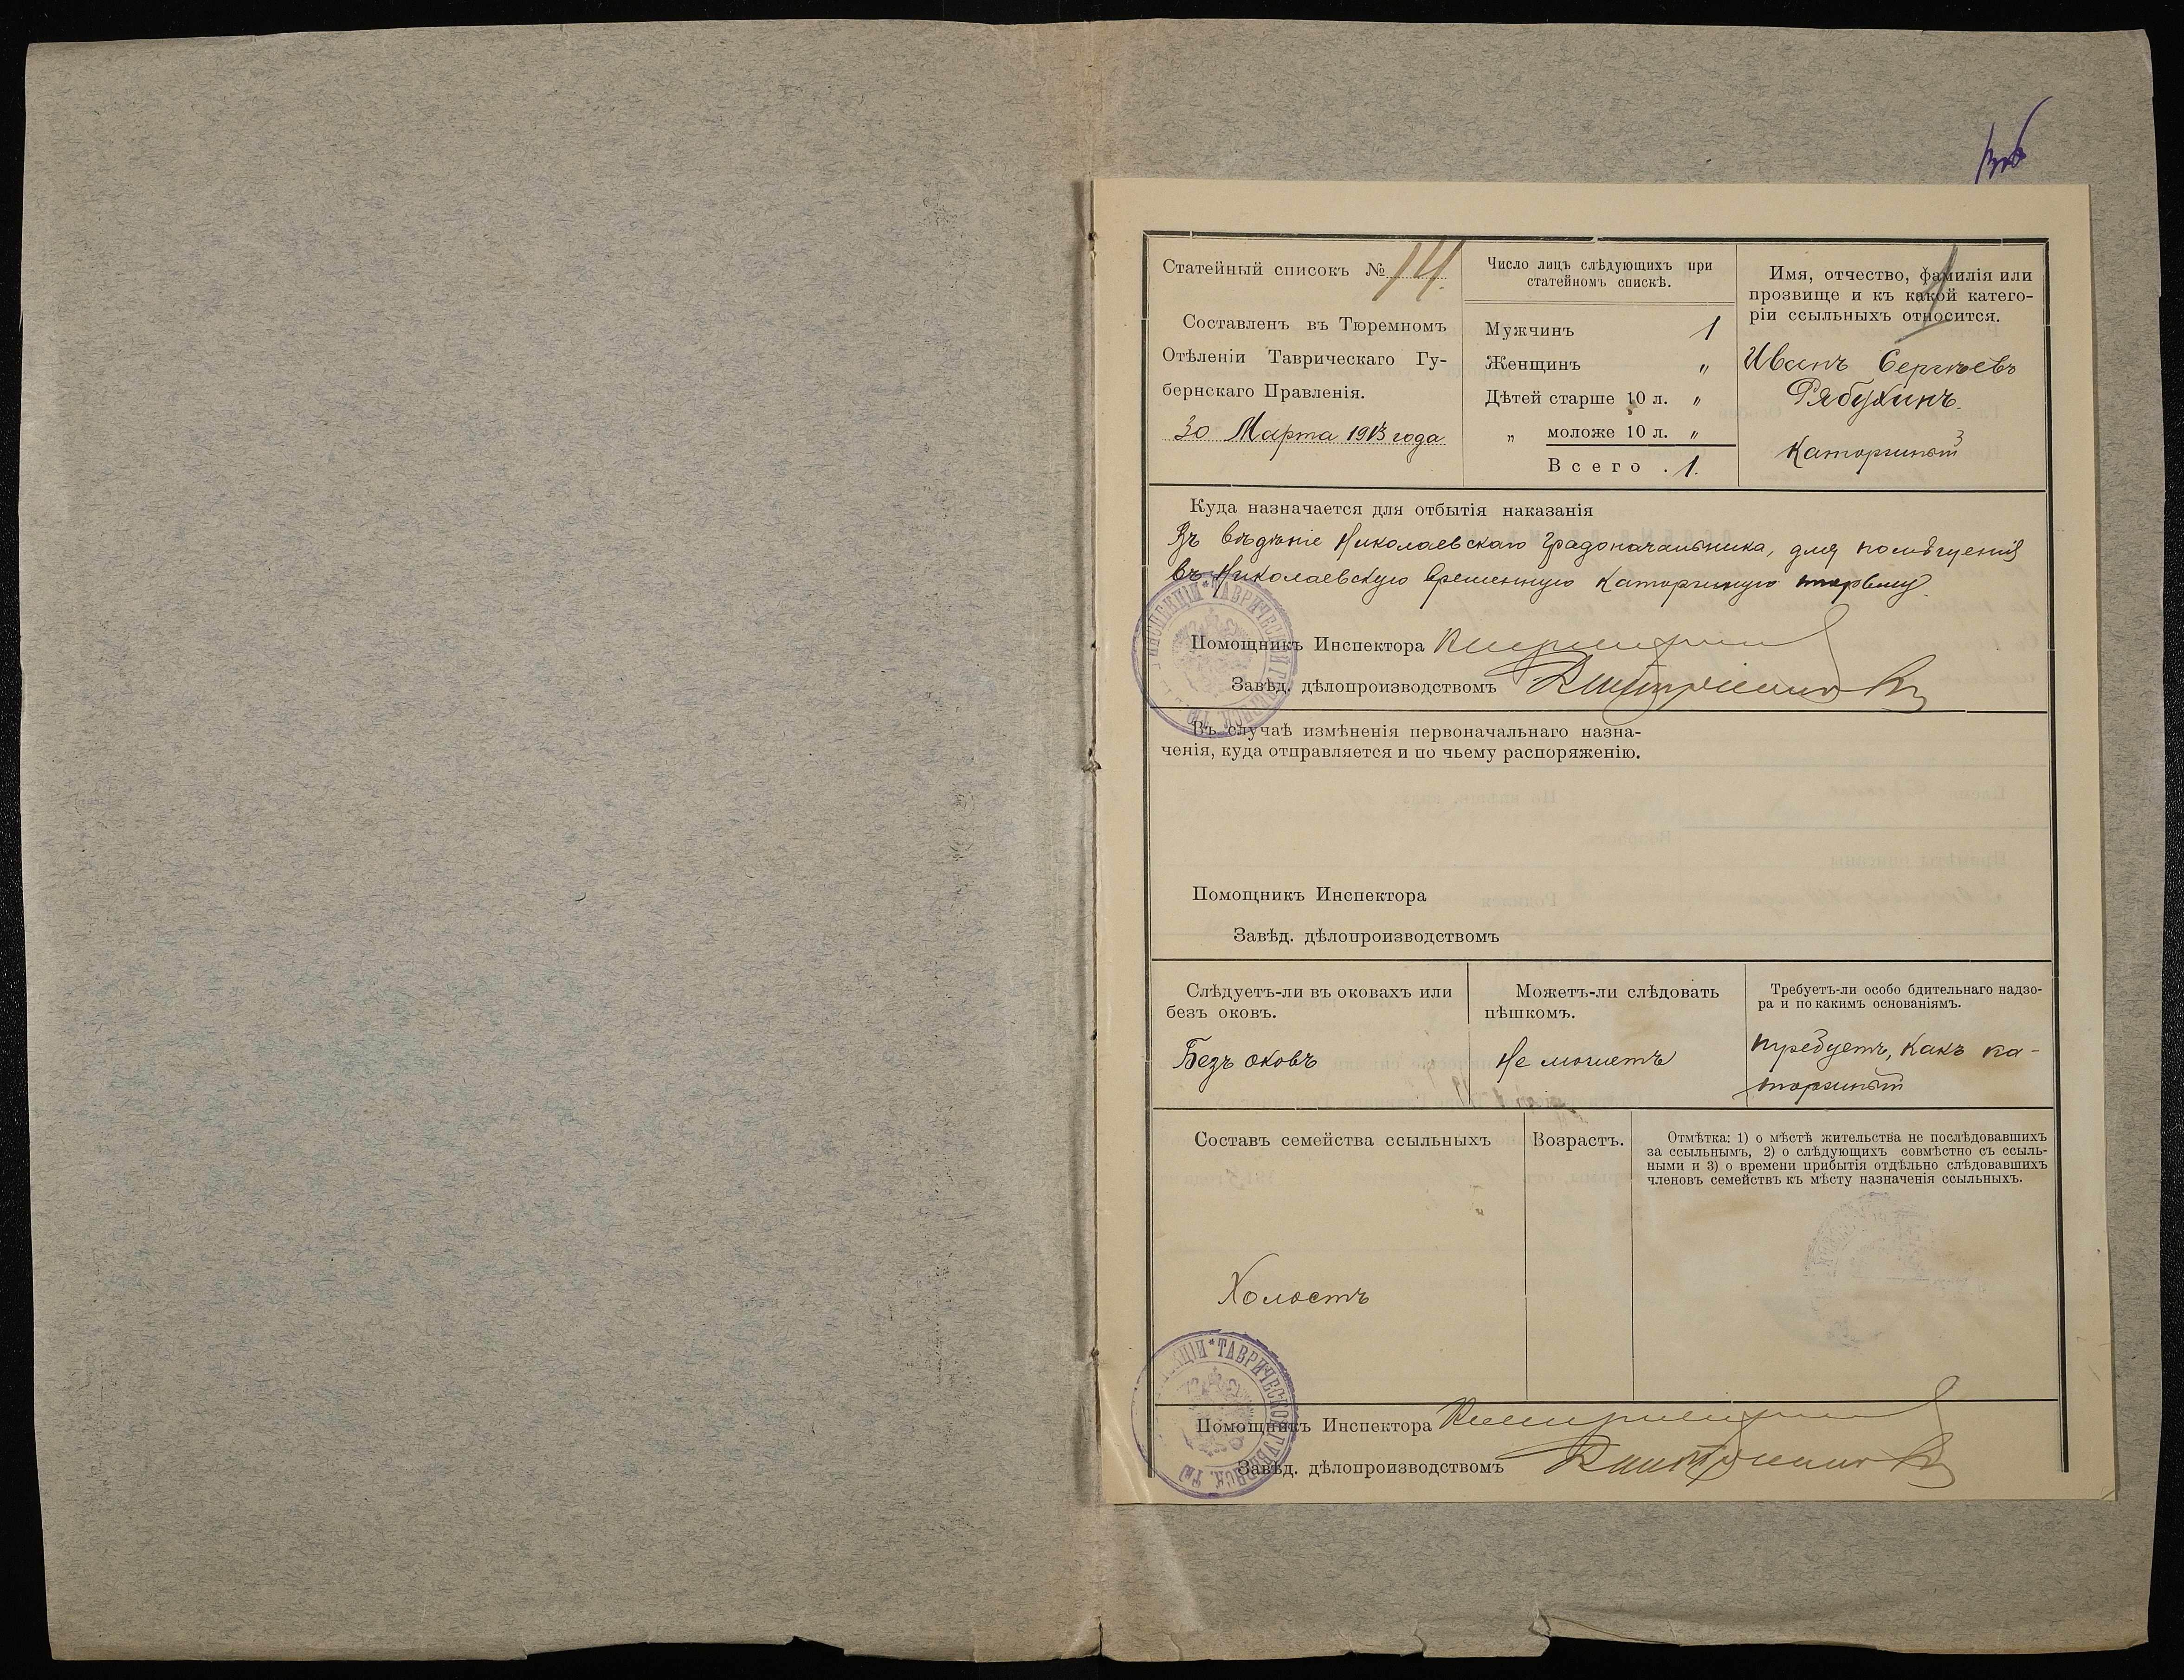 Статейный списокъ № 14.
Составленъ въ Тюремномъ
Отѣленіи Таврическаго Гу-
бернскаго Правленія.
30 Марта 1913 года
Число лицъ слѣдующихъ при
статейномъ спискѣ.
Мужчинъ 1
Женщинъ "
Дѣтей старше 10 л. "
" моложе 10 л. "
Всего . 1.
1
Имя, отчество, фамилія или
прозвище и къ какой катего-
ріи ссыльныхъ относится.
Иванъ Сергѣевъ
Рябухинъ.
Каторжный
Куда назначается для отбытія наказанія
Въ вѣдѣніе Николаевскаго Градоначальника, для помѣщенія
въ Николаевскую временную каторжную тюрьму.
Помощникъ Инспектора
Завѣд. дѣлопроизводствомъ
Въ случаѣ измѣненія первоначальнаго назна-
ченія, куда отправляется и по чьему распоряженію.
Помощникъ Инспектора
Завѣд. дѣлопроизводствомъ
Слѣдуетъ-ли въ оковахъ или
безъ оковъ.
Безъ оковъ
Можетъ-ли слѣдовать
пѣшкомъ.
Не можетъ
Требуетъ-ли особо бдительнаго надзо-
ра и по какимъ основаніямъ.
требуетъ, какъ ка-
торжный
Составъ семейства ссыльныхъ
Холостъ
Возрастъ.
Отмѣтка: 1) о мѣстѣ жительства не послѣдовавшихъ
за ссыльнымъ, 2) о слѣдующихъ совмѣстно съ ссыль-
ными и 3) о времени прибытія отдѣльно слѣдовавшихъ
членовъ семействъ къ мѣсту назначенія ссыльныхъ.
Помощникъ Инспектора
Завѣд. дѣлопроизводствомъ